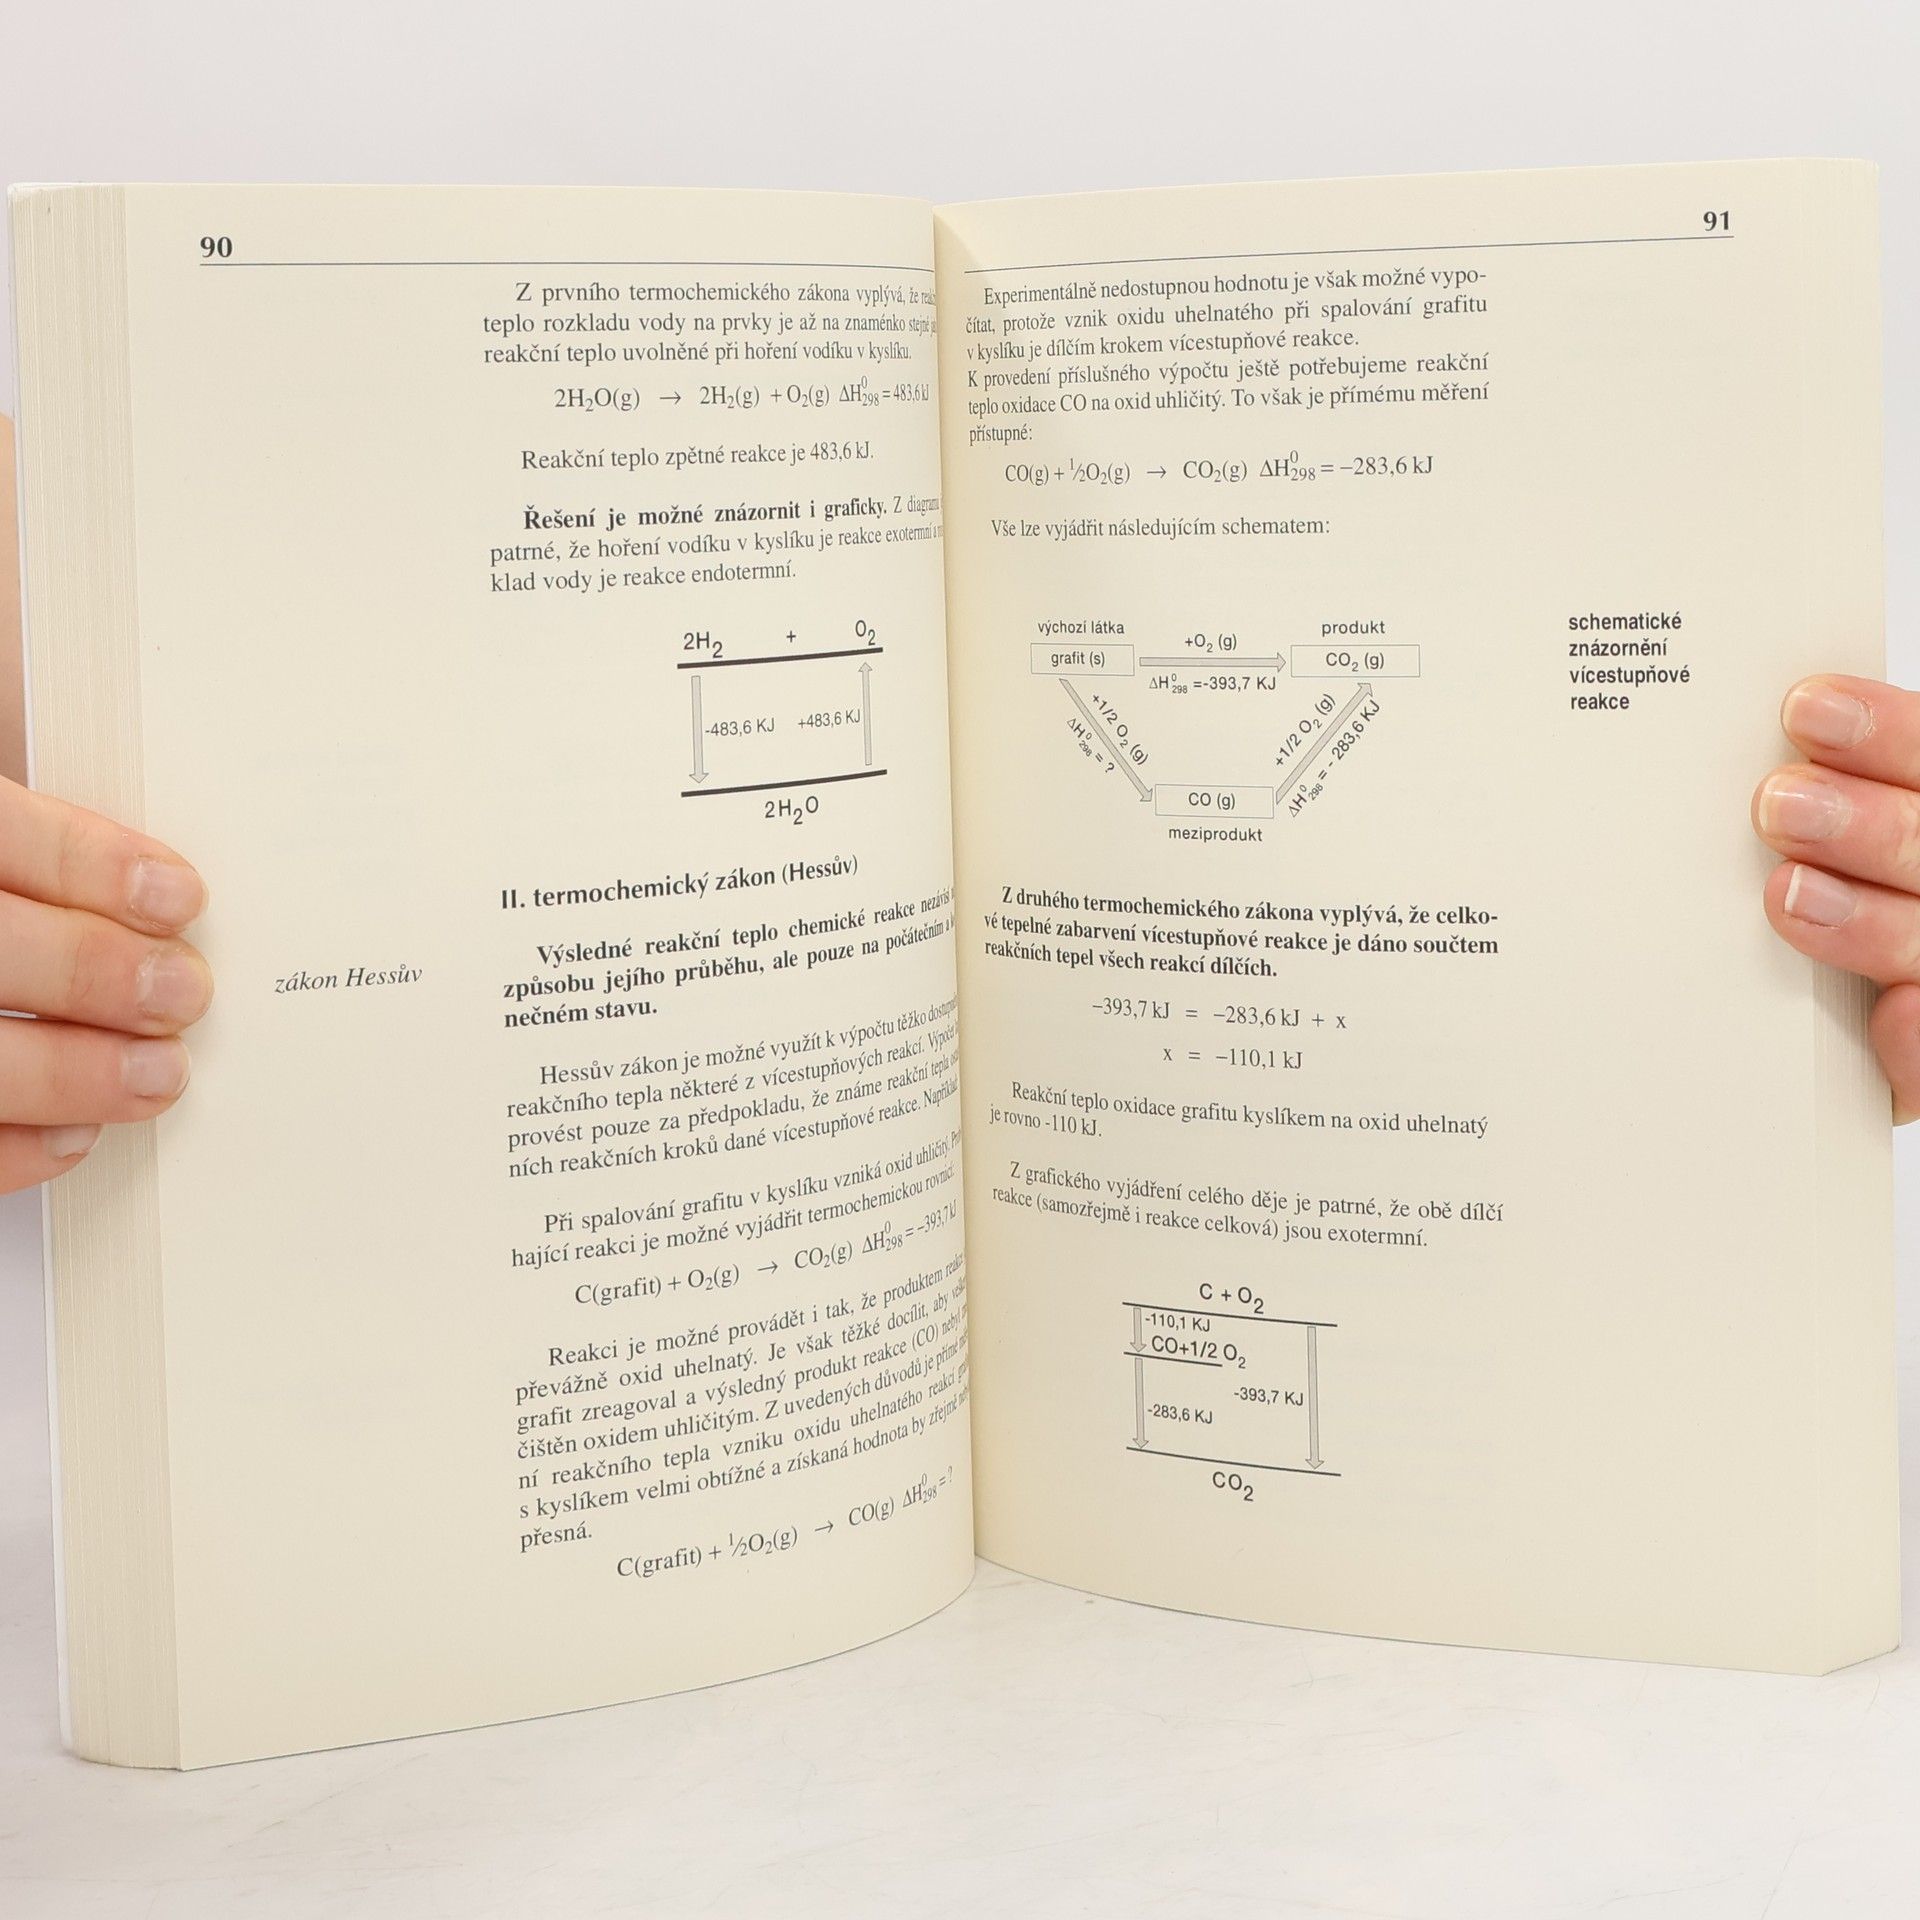 90
Z prvního termochemického zákona vyplývá, že
teplo rozkladu vody na prvky je až na znaménko stejné
reakční teplo uvolněné při hoření vodíku v kyslíku.
2H₂O(g) → 2H₂(g) + O₂(g) ΔH⁰₂₉₈ = 483,6 kJ
Reakční teplo zpětné reakce je 483,6 kJ.
Řešení je možné znázornit i graficky. Z diagramu
patrné, že hoření vodíku v kyslíku je reakce exotermní a
klad vody je reakce endotermní.
2H₂ + O₂
-483,6 KJ +483,6 KJ
2H₂O
II. termochemický zákon (Hessův)
zákon Hessův
Výsledné reakční teplo chemické reakce nezávisí
způsobu jejího průběhu, ale pouze na počátečním a
nečném stavu.
Hessův zákon je možné využít k výpočtu těžko
reakčního tepla některé z vícestupňových reakcí. Výpočet
provést pouze za předpokladu, že známe reakční tepla
ních reakčních kroků dané vícestupňové reakce. Například:
Při spalování grafitu v kyslíku vzniká oxid uhličitý.
hající reakci je možné vyjádřit termochemickou rovnicí:
C(grafit) + O₂(g) → CO₂(g) ΔH⁰₂₉₈ = –393,7 kJ
Reakci je možné provádět i tak, že produktem
převážně oxid uhelnatý. Je však těžké docílit, aby
grafit zreagoval a výsledný produkt reakce (CO) nebyl
čištěn oxidem uhličitým. Z uvedených důvodů je přímé
ní reakčního tepla vzniku oxidu uhelnatého reakcí
s kyslíkem velmi obtížné a získaná hodnota by zřejmě
přesná.
C(grafit) + ½O₂(g) → CO(g) ΔH⁰₂₉₈ = ?
91
Experimentálně nedostupnou hodnotu je však možné vypo-
čítat, protože vznik oxidu uhelnatého při spalování grafitu
v kyslíku je dílčím krokem vícestupňové reakce.
K provedení příslušného výpočtu ještě potřebujeme reakční
teplo oxidace CO na oxid uhličitý. To však je přímému měření
přístupné:
CO(g) + ½O₂(g) → CO₂(g) ΔH⁰₂₉₈ = –283,6 kJ
Vše lze vyjádřit následujícím schematem:
schematické
znázornění
vícestupňové
reakce
výchozí látka
grafit (s)
+O₂ (g)
ΔH⁰₂₉₈ =-393,7 KJ
produkt
CO₂ (g)
+1/2 O₂ (g)
ΔH⁰₂₉₈ = ?
+1/2 O₂ (g)
ΔH⁰₂₉₈ = - 283,6 KJ
CO (g)
meziprodukt
Z druhého termochemického zákona vyplývá, že celko-
vé tepelné zabarvení vícestupňové reakce je dáno součtem
reakčních tepel všech reakcí dílčích.
–393,7 kJ = –283,6 kJ + x
x = –110,1 kJ
Reakční teplo oxidace grafitu kyslíkem na oxid uhelnatý
je rovno -110 kJ.
Z grafického vyjádření celého děje je patrné, že obě dílčí
reakce (samozřejmě i reakce celková) jsou exotermní.
C + O₂
-110,1 KJ
CO+1/2 O₂
-393,7 KJ
-283,6 KJ
CO₂